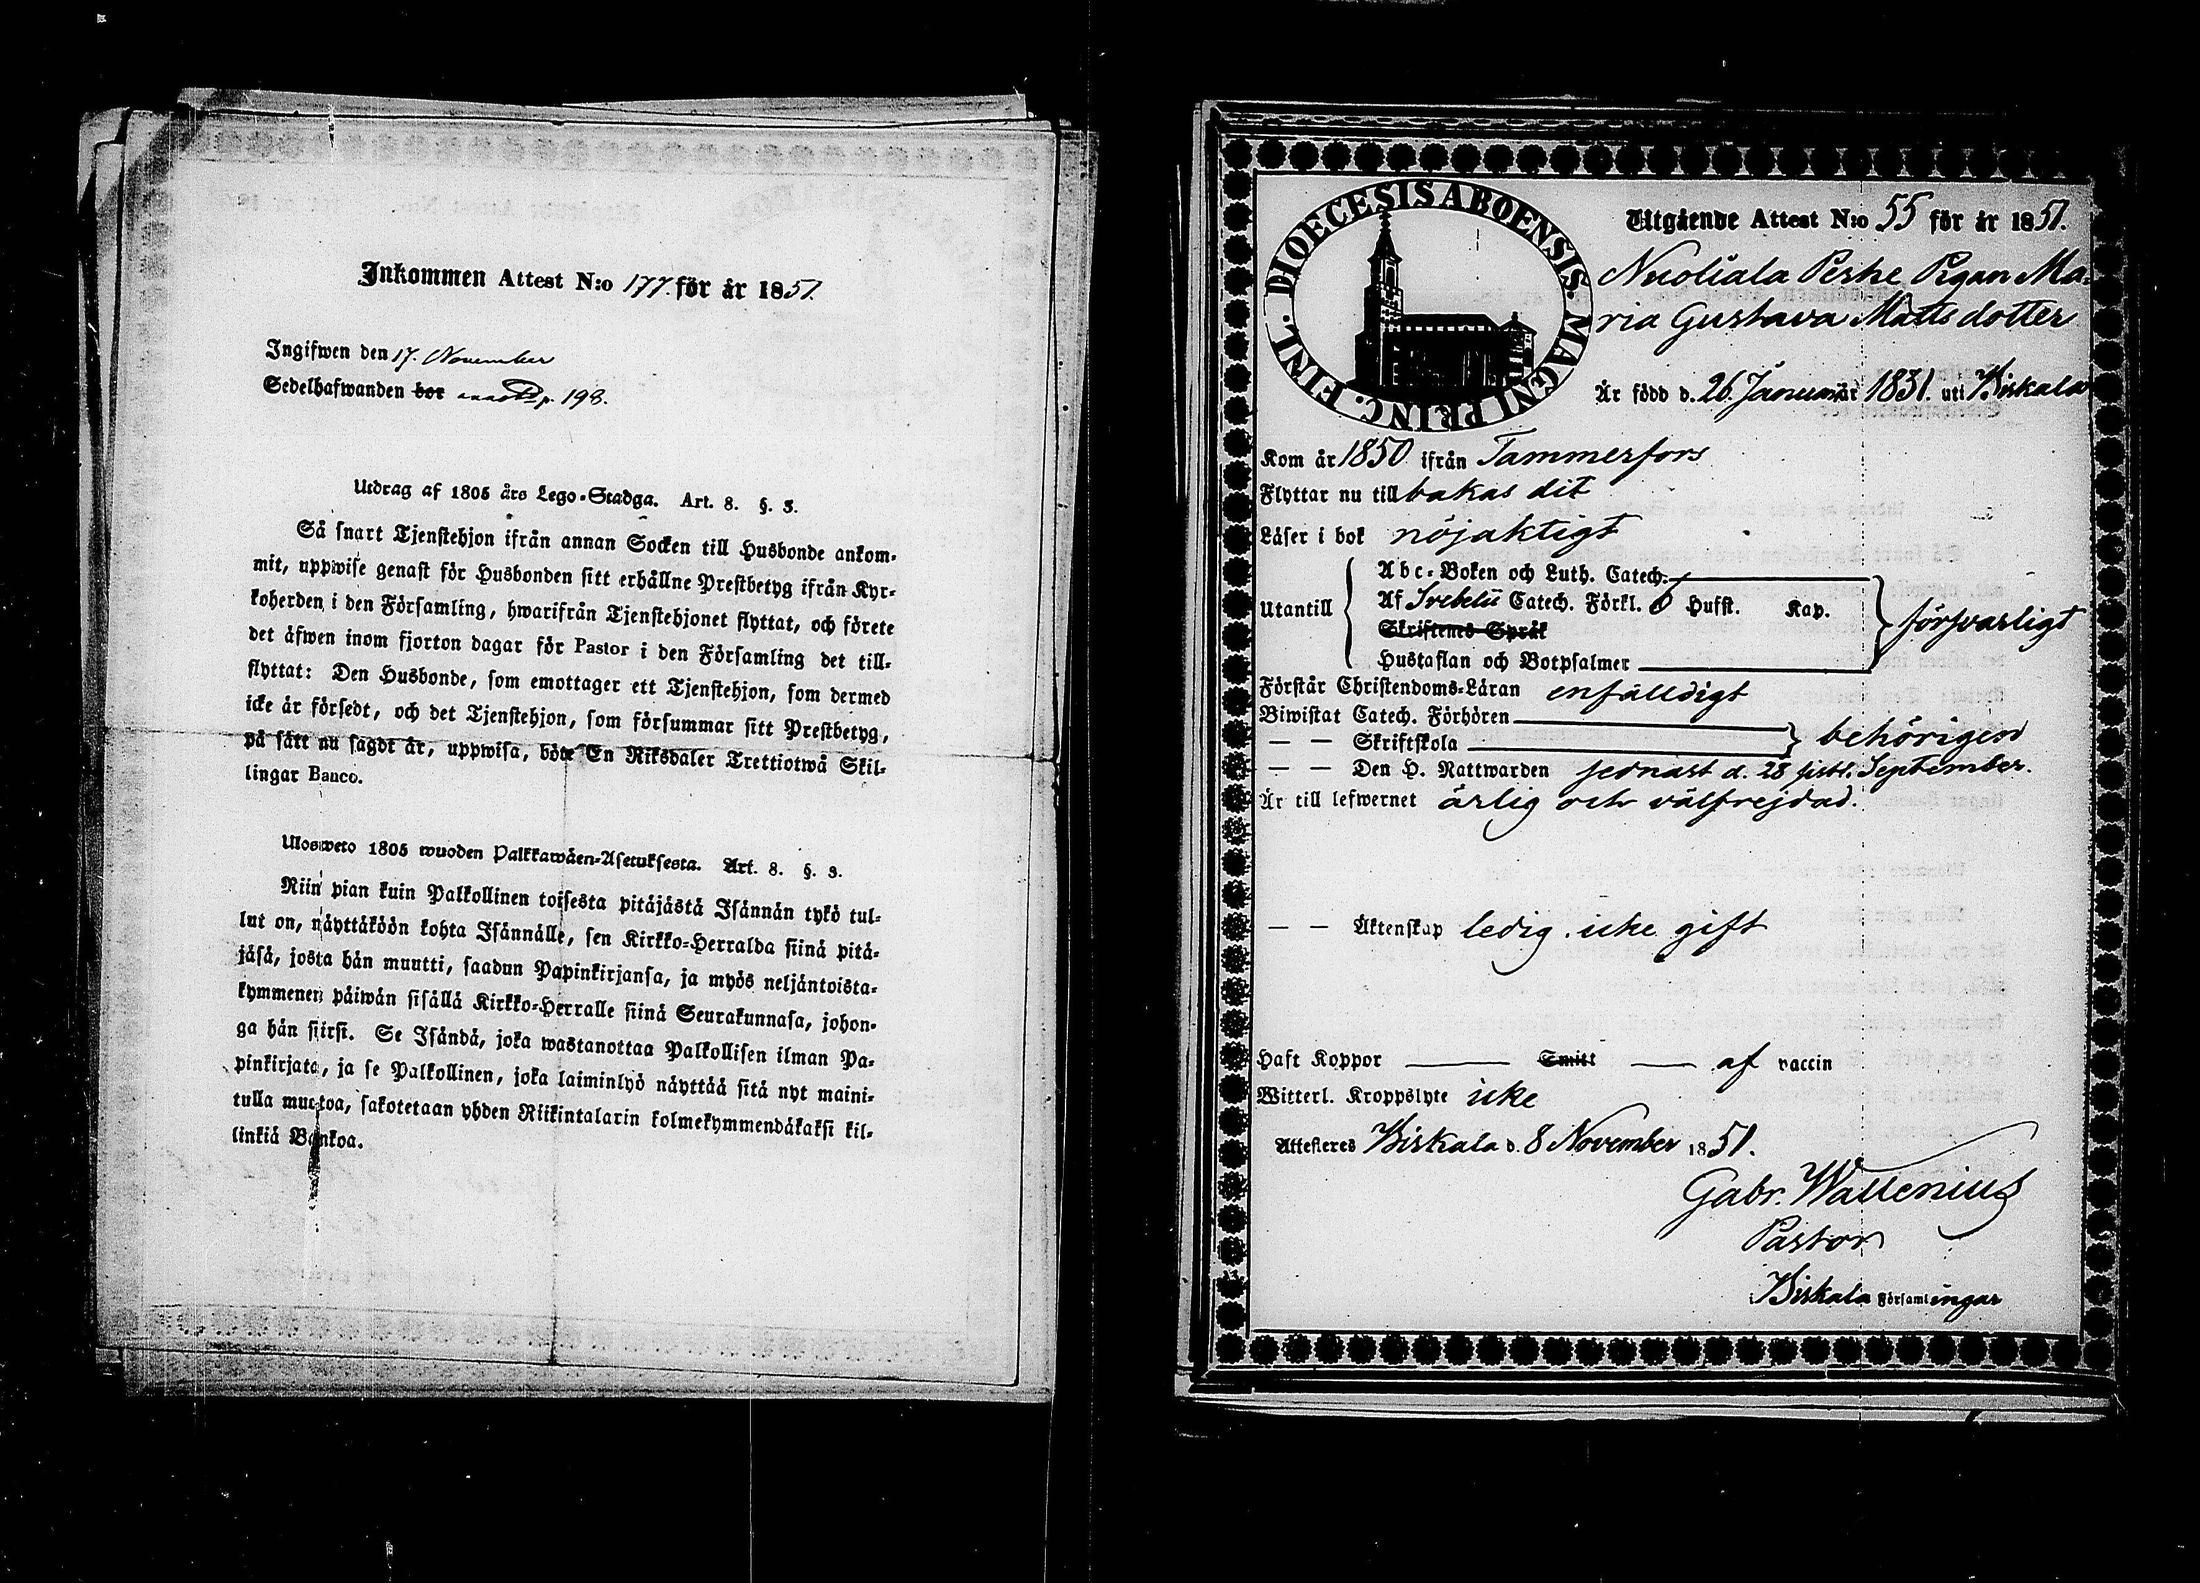 Inkommen Attest N:o 177. för år 1851.
Ingifwen den 17. November
Sedelhafwanden bor p. 198.
Utdrag af 1805 års Lego-Stadga. Art. 8. §. 3.
Så snart Tjenstehjon ifrån annan Socken till Husbonde ankom-
mit, uppwise genast för Husbonden sitt erhållne Prestbetyg ifrån Kyr-
koherden i den Församling, hwarifrån Tjenstehjonet flyttat, och förete
det äfwen inom fjorton dagar för Pastor i den Församling det till-
flyttat: Den Husbonde, som emottager ett Tjenstehjon, som dermed
icke är försedt, och det Tjenstehjon, som försummar sitt Prestbetyg,
på sätt nu sagdt är, uppwisa, böte En Riksdaler Trettiotwå Skil-
lingar Banco.
Ulosweto 1805 wuoden Palkkawäen-Asetuksesta. Art. 8. §. 3.
Niin pian kuin Palkollinen toisesta pitäjästä Isännän tykö tul-
lut on, näyttäköön kohta Isännälle, sen Kirkko-Herralda siinä pitä-
jäsä, josta hän muutti, saadun Papinkirjansa, ja myös neljäntoista-
kymmenen päiwän sisällä Kirkko-Herralle siinä Seurakunnasa, johon-
ga hän siirsi. Se Isändä, joka wastanottaa Palkollisen ilman Pa-
pinkirjata, ja se Palkollinen, joka laiminlyö näyttää sitä nyt maini-
tulla muotoa, sakotetaan yhden Riikintalarin kolmekymmendäkaksi kil-
linkiä Bankoa.
DIOECESIS ABOENSIS. MAGNI PRINC. FINL.
Utgående Attest N:o 55 för år 1851.
Nuoliala Perhe Pigan Ma-
ria Gustava Matts dotter
Är född d. 26. Januari år 1831. uti Birkala
Kom år 1850 ifrån Tammerfors
Flyttar nu till bakas dit
Läser i bok nöjaktigt
Utantill
Abc-Boken och Luth. Catech.
Af Svebelii Catech. Förkl. Hufst. Kap.
Skriftenes Språk
Hustaflan och Botpsalmer
försvarligt
Förstår Christendoms-Läran enfalldigt
Biwistat Catech. Förhören
— — Skriftskola
behörigen
— — Den H. Nattwarden sednast d. 28 sistl. September.
Är till lefwernet ärlig och välfrejdad.
— — Äktenskap ledig. icke gift
Haft Koppor — Smitt — af vaccin
Witterl. Kroppslyte icke
Attesteres Birkala d. 8 November 1851.
Gabr. Wallenius
Pastor
i Birkala Församlingar